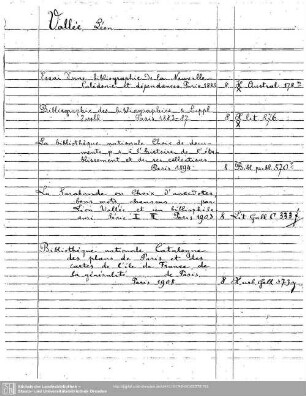 Vallée, Léon
Essai d'une bibliographie de la Nouvelle
Calédonie et dépendances. Paris 1883 8 H. Austral. 178
Bibliographie des bibliographies & Suppl.
Paris 1883-87 8 H. lit 876
La bibliothèque nationale Choix de docu-
ments p. s. à l'histoire de l'éta-
blissement et de ses collections
Paris 1894. 8 Bibl. publ. 570
La Sarabande ou Choix d'anecdotes
bons mots chansons par
Léon Vallée et un bibliophile
Paris I II Paris 1903 8 Lit Gall C 333
Bibliothèque nationale Catalogue
des plans de Paris et des
cartes de l'île de France, de
la généralité de Paris,
Paris 1908 8